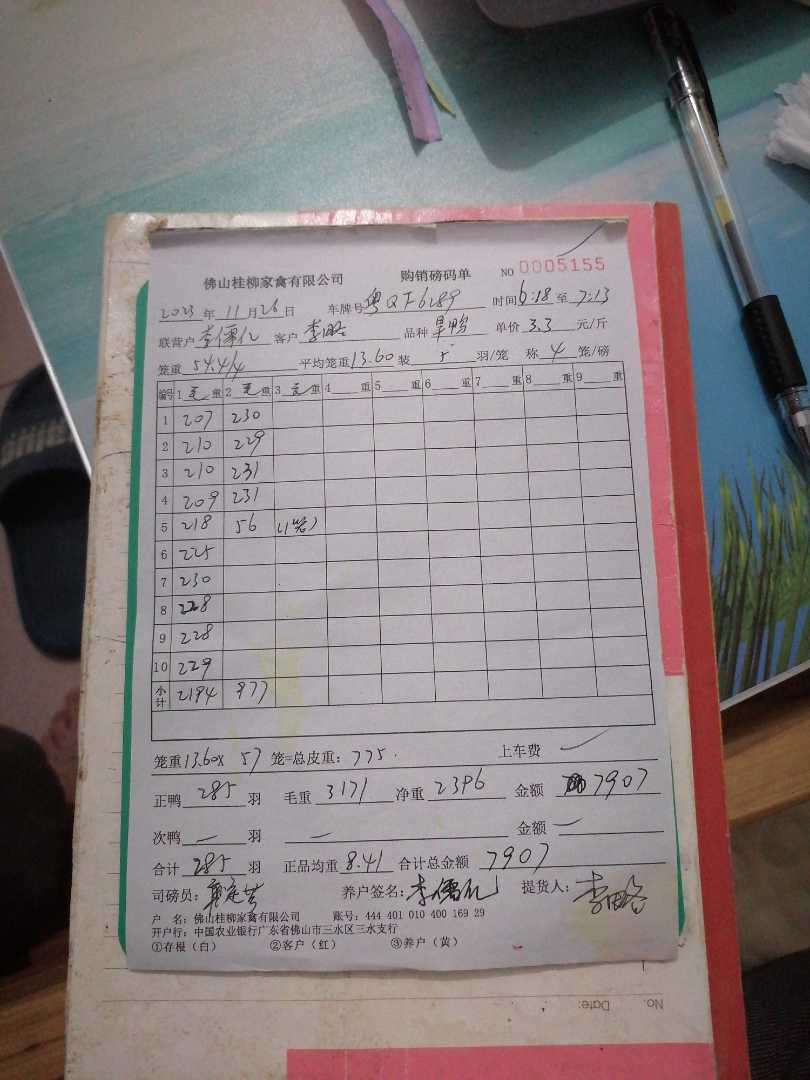 佛山桂柳家禽有限公司 购销磅码单 NO 0005155
2023 年 11 月 26 日 车牌号 粤QF6289 时间 6:18 至 7:13
联营户 李儒亿 客户 李略 品种 旱鸭 单价 3.3 元/斤
笼重 54.4/4 平均笼重 13.60 装 5 羽/笼 称 4 笼/磅
编号 1 毛 重 2 毛 重 3 毛 重 4 重 5 重 6 重 7 重 8 重 9 重
1 207 230
2 210 229
3 210 231
4 209 231
5 218 56 (1笼)
6 225
7 230
8 228
9 228
10 229
小计 2194 977
笼重 13.60x 57 笼=总皮重: 775. 上车费
正鸭 285 羽 毛重 3171 净重 2396 金额 7907
次鸭 — 羽 — 金额 —
合计 285 羽 正品均重 8.41 合计总金额 7907
司磅员: 养户签名: 李儒亿 提货人: 李略
户 名: 佛山桂柳家禽有限公司 账号: 444 401 010 400 169 29
开户行: 中国农业银行广东省佛山市三水区三水支行
①存根（白） ②客户（红） ③养户（黄）
No. Date: